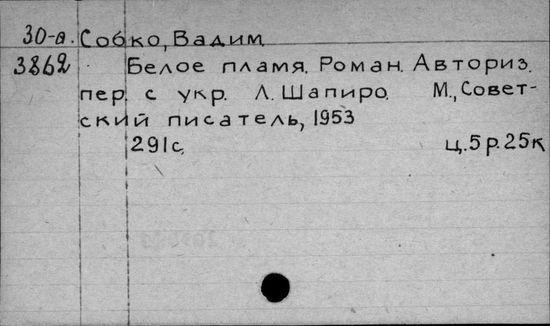 30-а. Собко, Вадим.
3862 Белое пламя. Роман. Авториз.
пер. с укр. Л. Шапиро. М., Совет-
ский писатель, 1953
291с. ц. 5 р. 25к